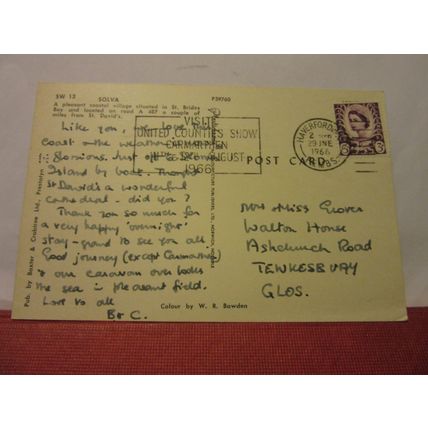 SW 13 SOLVA P39760
A pleasant coastal village situated in St. Brides
Bay and located on road A 487 a couple of
miles from St. David's.
VISIT
UNITED COUNTIES SHOW
CARMARTHEN
AUGUST
1966
HAVERFORDWEST
29 JNE
1966
PEMBS.
POST CARD
Like you, we love this
coast & the weather is
glorious. Just off to
Island by boat. Thought
St David's a wonderful
cathedral - did you?
Thank you so much for
a very happy 'overnight'
stay - grand to see you all.
Good journey (except Carmarthen)
& our caravan over looks
the sea in pleasant field.
Love to all
B & C.
Mrs Miss Grover
Walton House
Ashchurch Road
TEWKESBURY
GLOS.
Pub. by Baxter & Crabtree Ltd., Prestatyn
Colour by W. R. Bawden